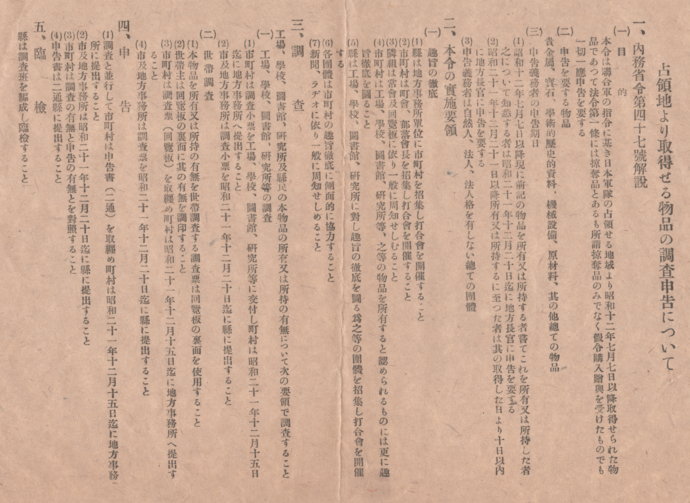 占領地より取得せる物品の調査申告について
一、内務省令第四十七號解説
(一)目的
本令は聯合軍の指令に基き日本軍隊の占領せる地域より昭和十二年七月七日以降取得せられた物
品であつて法令第一條には掠奪品とあるも所謂掠奪品のみでなく假令購入贈與を受けたものでも
一切一應申告を要する
(二)申告を要する物品
貴金屬、寳石、學術的歴史的資料、機械設備、原材料、其の他總ての物品
(三)申告義務者の申告期日
(1)昭和十二年七月七日以降現に前記の物品を所有又は所持する者並でこれを所有又は所持した者
之について知悉する者は昭和二十一年十二月二十日迄に地方長官に申告を要する
(2)昭和二十一年十二月二十一日以降所有又は所持するに至つた者は其の取得した日より十日以内
に地方長官に申告を要する
(3)申告義務者は自然人、法人、法人格を有しない總ての團體
二、本令の實施要領
(一)趣旨の徹底
(1)縣は地方事務所單位に市町村を招集し打合會を開催すること
(2)市町村は町會、部落會長を招集し打合會を開催すること
(3)隣組は常會及回覽板に依り一般に周知せしむること
(4)市町村は工場、學校、圖書館、研究所等、之等の物品を所有すると認められるものには更に趣
旨徹底を圖ること
(5)縣は工場、學校、圖書館、研究所に對し趣旨の徹底を圖る爲之等の團體を招集し打合會を開催
する
(6)各團體は市町村の趣旨徹底に側面的に協力すること
(7)新聞、ラヂオに依り一般に周知せしめること
三、調査
工場、學校、圖書館、研究所及縣民の本物品の所有又は所持の有無について次の要領で調査すること
(一)工場、學校、圖書館、研究所等の調査
(1)市町村は調査小票を工場、學校、圖書館、研究所等に交付し町村は昭和二十一年十二月十五日
迄に地方事務所へ提出すること
(2)市及地方事務所は調査小票を昭和二十一年十二月二十日迄に縣に提出すること
(二)世帶調査
(1)本物品を所有又は所持の有無を世帶調査する調査票は回覽板の裏面を使用すること
(2)世帶主は回覽板の裏面に其の有無を調印すること
(3)市町村は調査票(回覽板)を取纒め町村は昭和二十一年十二月十五日迄に地方事務所へ提出す
ること
(4)市及地方事務所は調査票を昭和二十一年十二月二十日迄に縣に提出すること
四、申告
(1)調査と並行して市町村は申告書(二通)を取纒め町村は昭和二十一年十二月十五日迄に地方事務
所に提出すること
(2)市及地方事務所は昭和二十一年十二月二十日迄に縣に提出すること
(3)市町村は調査の有無と申告の有無とを對照すること
(4)申告書は二通縣に提出すること
五、臨檢
縣は調査班を編成し臨檢すること